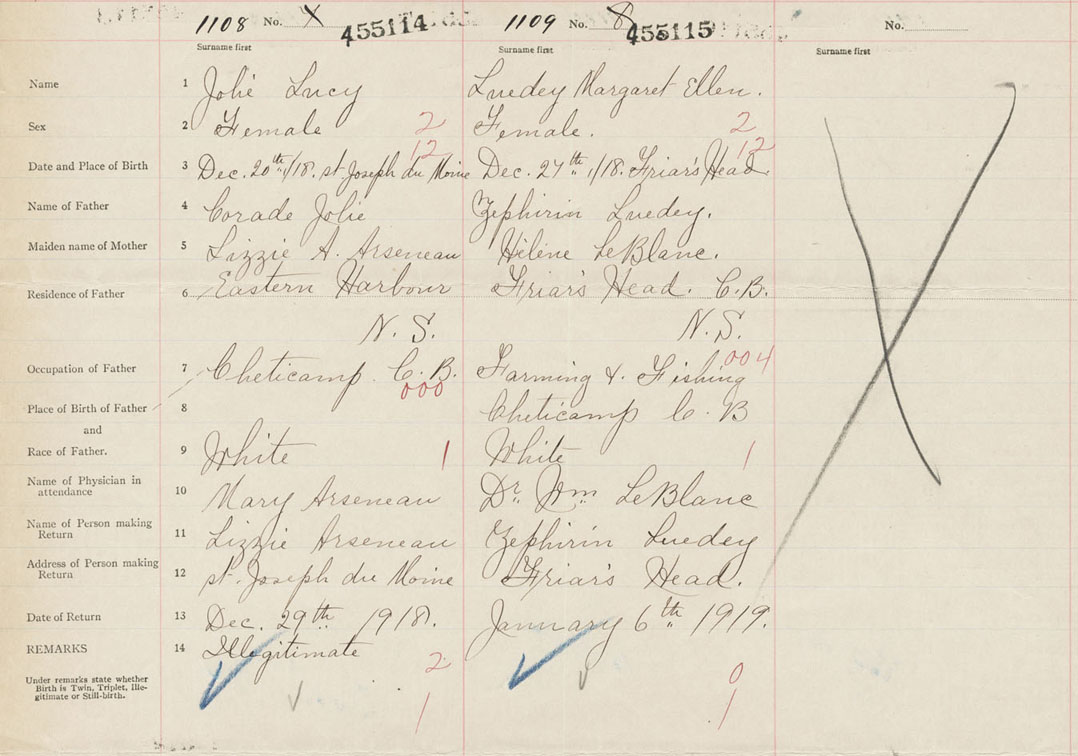 1108 No. X 455114 1109 No. 8 455115 No.
Surname first Surname first Surname first
Name 1 Jolie Lucy Luedey Margaret Ellen.
Sex 2 Female 2 Female. 2
12 12
Date and Place of Birth 3 Dec. 20th/18. st Joseph du Moine Dec. 27th/18. Friar's Head.
Name of Father 4 Corade Jolie Zephirin Luedey.
Maiden name of Mother 5 Lizzie A. Arseneau Hélène LeBlanc.
Residence of Father 6 Eastern Harbour Friar's Head. C.B.
N. S. N. S.
Occupation of Father 7 Cheticamp C. B. Farming & Fishing 004
000
Place of Birth of Father 8 Cheticamp C. B
and
Race of Father. 9 White 1 White 1
Name of Physician in
attendance 10 Mary Arseneau Dr. Wm LeBlanc
Name of Person making
Return 11 Lizzie Arseneau Zephirin Luedey
Address of Person making
Return 12 st. Joseph du Moine Friar's Head.
Date of Return 13 Dec. 29th 1918. January 6th 1919.
REMARKS 14 Illegitimate 2 0
Under remarks state whether
Birth is Twin, Triplet, Ille-
gitimate or Still-birth.
1 1